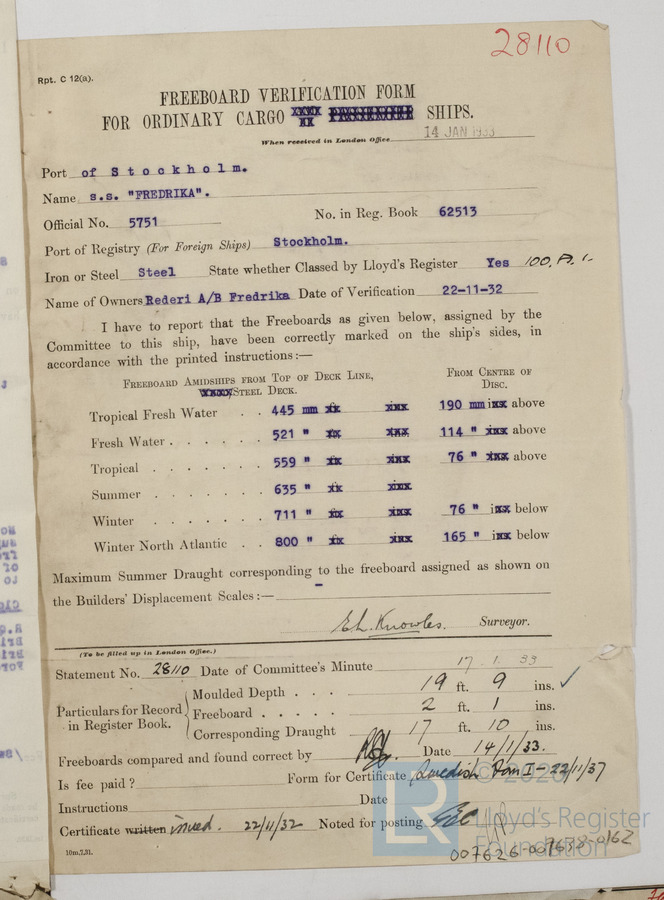 28110
Rpt. C 12(a).
FREEBOARD VERIFICATION FORM
FOR ORDINARY CARGO SHIPS.
When received in London Office 14 JAN 1933
Port of Stockholm.
Name s.s. "FREDRIKA".
Official No. 5751 No. in Reg. Book 62513
Port of Registry (For Foreign Ships) Stockholm.
Iron or Steel Steel State whether Classed by Lloyd's Register Yes 100. A. 1.
Name of Owners Rederi A/B Fredrika Date of Verification 22-11-32
I have to report that the Freeboards as given below, assigned by the
Committee to this ship, have been correctly marked on the ship's sides, in
accordance with the printed instructions:—
FREEBOARD AMIDSHIPS FROM TOP OF DECK LINE, FROM CENTRE OF
STEEL DECK. DISC.
Tropical Fresh Water . . 445 mm xx xxx 190 mm ins above
Fresh Water . . . . . . 521 " xx xxx 114 " xxx above
Tropical . . . . . . . 559 " xx xxx 76 " xxx above
Summer . . . . . . . 635 " xx xxx
Winter . . . . . . . 711 " xx xxx 76 " ins below
Winter North Atlantic . . 800 " xx xxx 165 " ins below
Maximum Summer Draught corresponding to the freeboard assigned as shown on
the Builders' Displacement Scales :— –
E.L. Knowles. Surveyor.
(To be filled up in London Office.)
Statement No. 28110 Date of Committee's Minute 17. 1. 33
Particulars for Record in Register Book.
Moulded Depth . . . 19 ft. 9 ins. ✓
Freeboard . . . . . 2 ft. 1 ins.
Corresponding Draught 17 ft. 10 ins.
Freeboards compared and found correct by Date 14/1/33.
Is fee paid? Form for Certificate Swedish Form I - 22/11/37
Instructions Date
Certificate written issued. 22/11/32 Noted for posting
10m,7,31.
© 2020
LR
Lloyd's Register
Foundation
007626-007638-0162